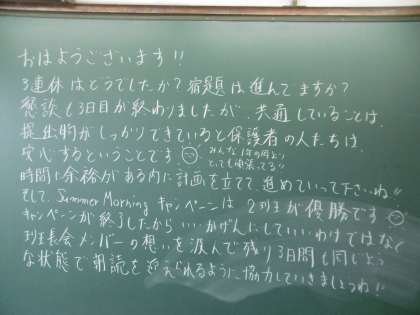 おはようございます!!
3連休はどうでしたか？宿題は進んでますか？
懇談も3日目が終わりましたが、共通していることは、
提出物がしっかりできていると保護者の人たちは、
安心するということです。みんな1年の時より
とても頑張ってる!!
時間に余裕がある内に計画を立てて、進めていって下さいね!!
そして、Summer Morning キャンペーンは 2班が優勝です
キャンペーンが終了したから…かげんにしていいわけではなく
班長会メンバーの想いを汲んで残り3日間も同じよう
な状態で朝読を迎えられるように協力していきましょうね!!